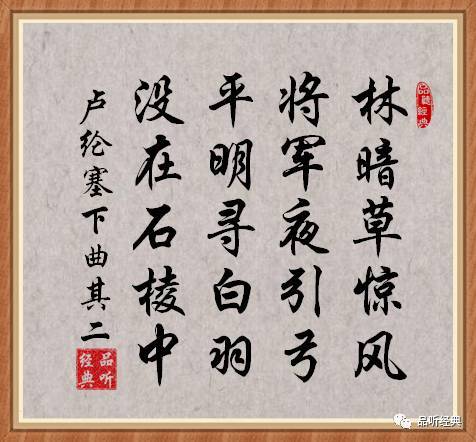 林暗草惊风
将军夜引弓
平明寻白羽
没在石棱中
卢纶塞下曲其二
品听经典
品听经典
品听经典